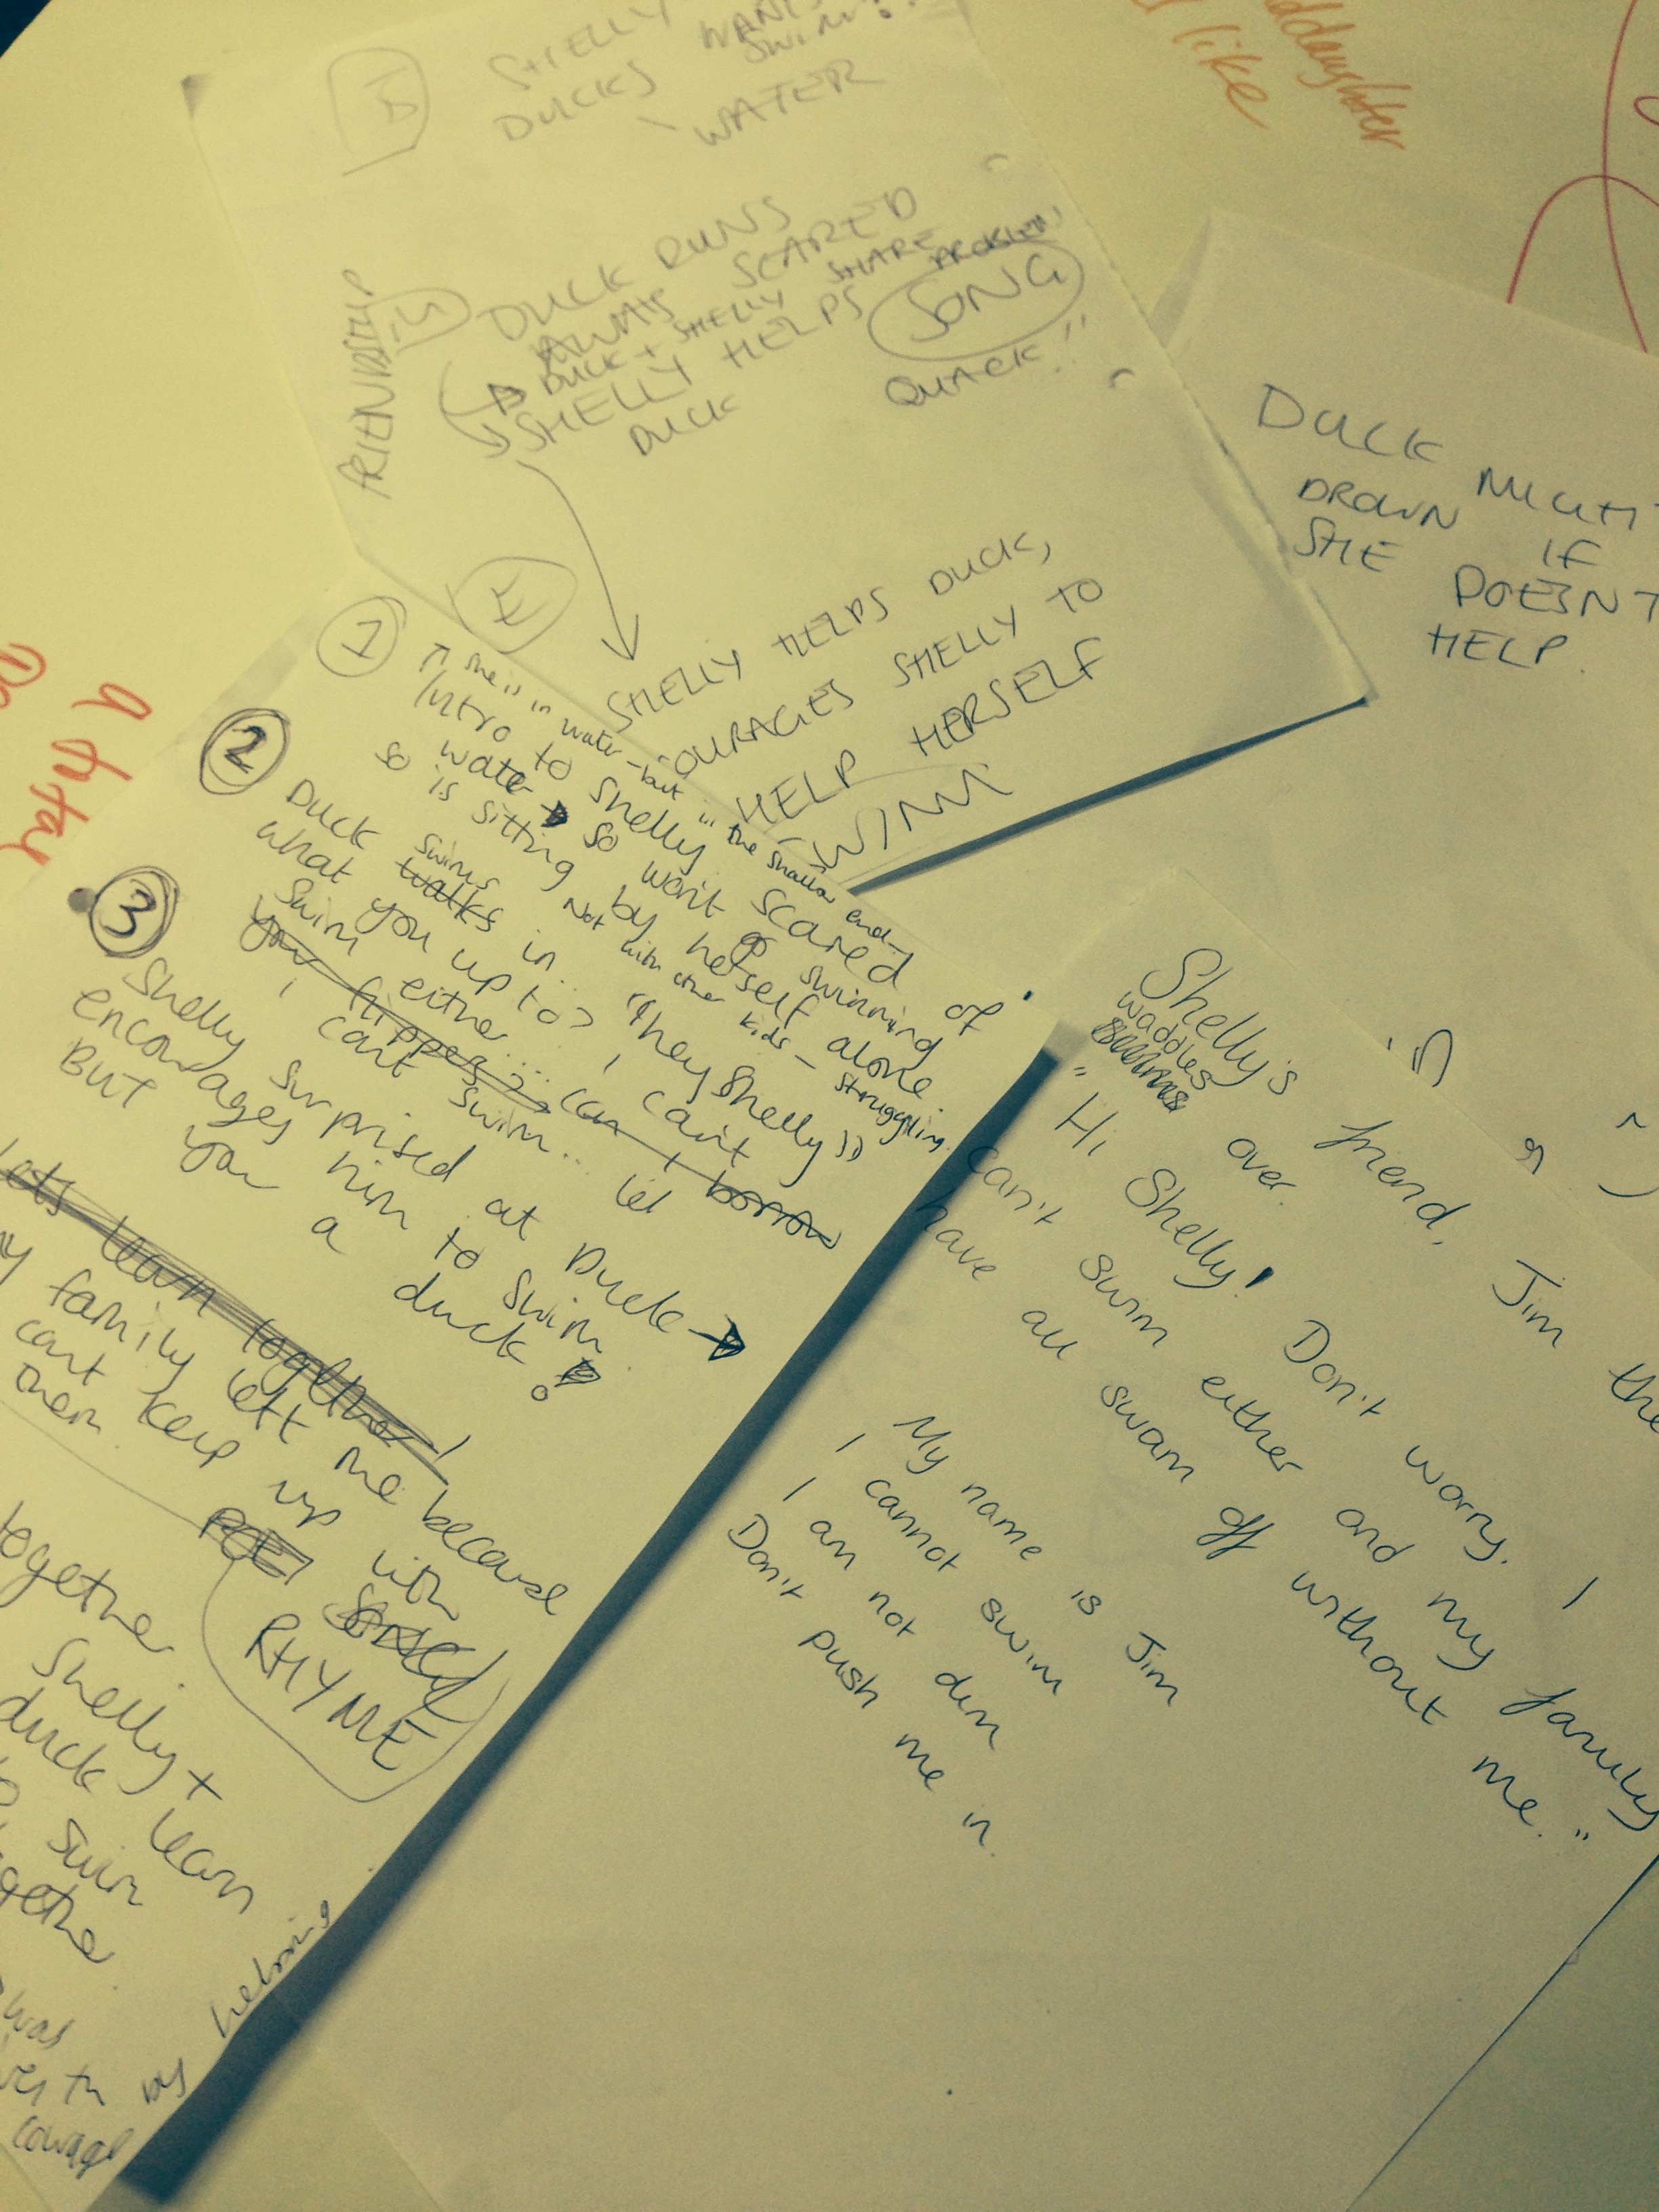 B
SHELLY
DUCKS
SWIM?
WATER
DUCK RUNS
AWAY SCARED
DUCK + SHELLY SHARE PROBLEM
SHELLY HELPS
DUCK
SONG
QUACK!!
FRIENDSHIP
M
E
SHELLY HELPS DUCK,
SHELLY TO
HELP HERSELF
SWIM
DUCK
DROWN IF
SHE DOESN'T
HELP.
like
1
She is in water - but in the shallow end -
Intro to Shelly scared of
water so won't go swimming
so is sitting by herself alone.
Not with other kids - struggling.
2
Duck swims walks in... "hey Shelly"
what you up to? I can't
swim either... can I borrow
your flippers?
I can't swim... let
3
Shelly surprised at Duck
encourages him to swim.
But you a duck?
Lets learn together!
my family left me because
cant keep up with
them.
RHYME
together
Shelly +
duck learn
to swim
together
was
by helping
courage
Shelly's friend, Jim the
waddles over.
"Hi Shelly! Don't worry. I
can't swim either and my family
have all swam off without me."
My name is Jim
I cannot swim
I am not dim
Don't push me in.